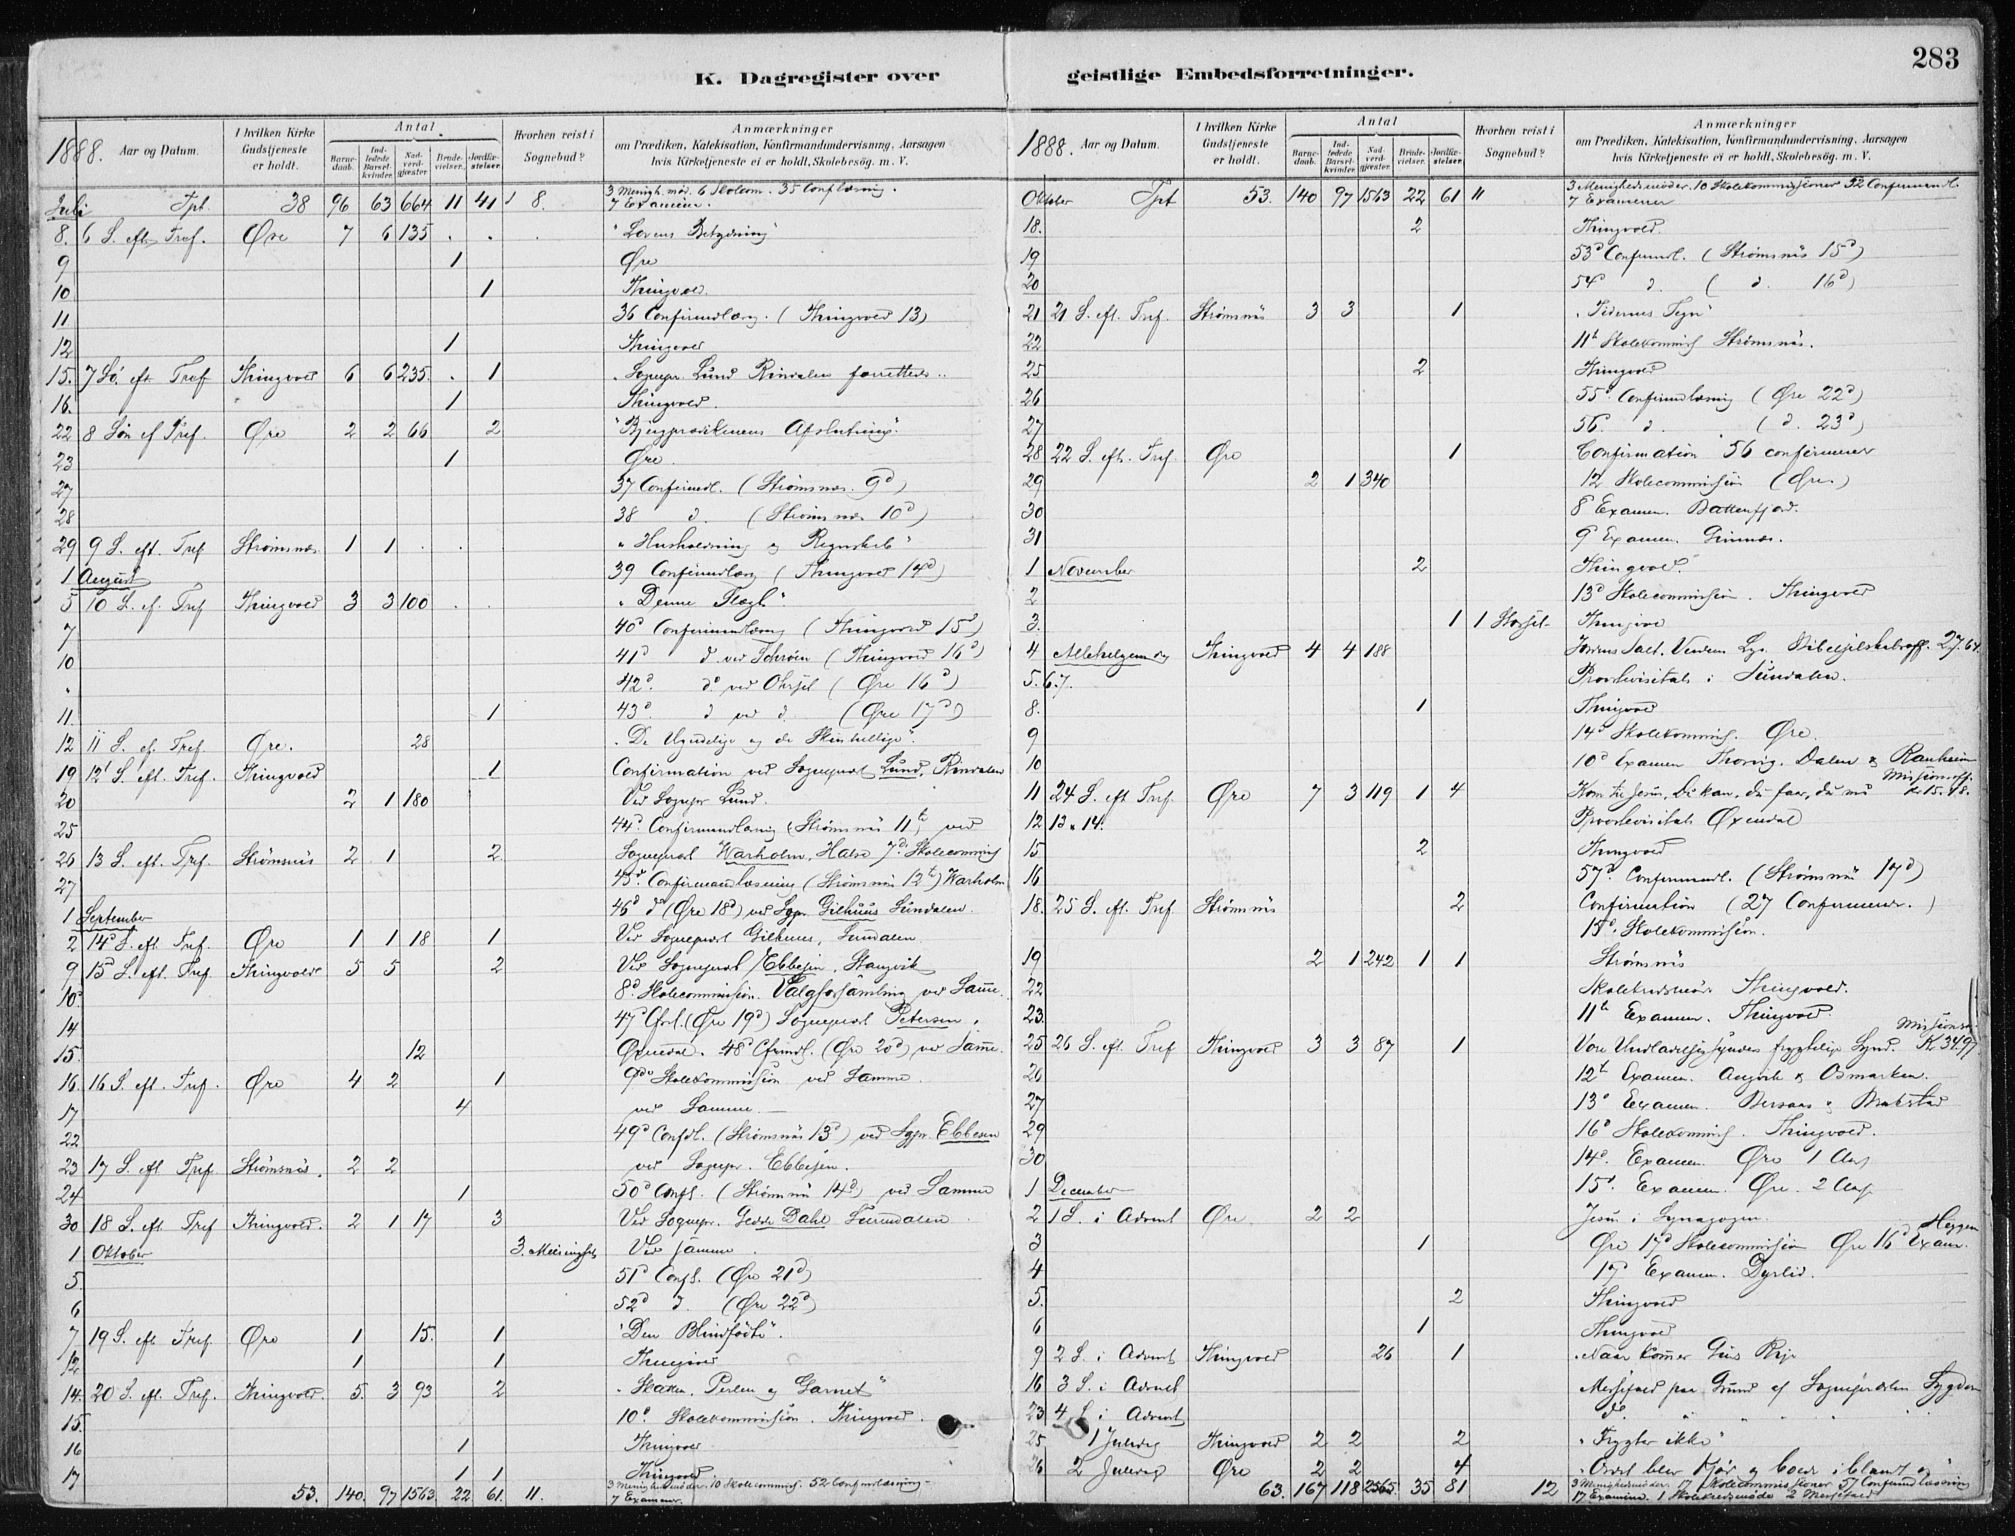 283
K. Dagregister over geistlige Embedsforretninger.
1888. Aar og Datum. I hvilken Kirke Gudstjeneste er holdt. Antal Barnedaab. Indledede Barselkvinder. Nadverdgjæster Brudevielser. Jordfæstelser. Hvorhen reist i Sognebud? Anmærkninger om Prædiken, Katekisation, Konfirmandundervisning, Aarsagen hvis Kirketjeneste ei er holdt, Skolebesøg. m. V.
Juli Tpt. 38 96 63 664 11 41 8. 3 Menigh. mød. 6 Skolcom. 35 Conflæsnig.
7 Examiner.
8. 6 S. eft. Tref. Øre 7 6 135 . . . "Lovens Betydning"
9 1 Øre
10 1 Thingvold.
11 36 Confirmdlæsn. (Thingvold 13)
12 1 Thingvold
15. 7 Sø. eft Tref Thingvold 6 6 235. . 1 Sognepr. Lund Rindalen forrettede..
16. 1 Thingvold.
22 8 Søn ef Tref. Øre 2 2 66 2 "Bjergprædikenens Afslutning".
23 1 Øre.
27 37 Confirmdl. (Strømsnæs. 9d)
28 38 d. (Strømsnæs 10d)
29 9 S. eft. Tref Strømsnæs 1 1 . . "Husholdning og Regnskab"
1 August 39 Confirmdlæsn (Thingvold 14d)
5 10 S. ef. Tref Thingvold 3 3 100 . . "Denne Slægt".
7 40d Confirmandlæsng (Thingvold 15d)
10 41d d. ved Schrøen (Thingvold 16d)
" 42d. do ved Ohrsel (Øre 16d)
11. 1 43d. d ved d. (Øre 17d)
12 11 S. ef. Tref Øre. 28 "De Ugudelige og de Skinhellige".
19 12t S. eft. Tref. Thingvold 1 Confirmation ved Sogneprest Lund, Rindalen
20 2 1 180 Ved Sognepr Lund.
25 44d. Confirmandlæsnig (Strømsnæs 11te) ved
26 13 S. eft. Tref. Strømsnæs 2 1 2. Sogneprest Warholm, Halse 7d Skolecommis
27 45d. Confirmandlæsning (Strømsnæs 12te) Warholm
1 September 46d d (Øre 18d) ved Sgpr. Gilhuus Sundalen.
2 14d S. eft. Tref. Øre 1 1 18 1 Ved Sogneprest Gilhuus, Sundalen
9 15d S. eft. Tref. Thingvold 5 5 2 Ved Sogneprest Ebbesen, Stangvik
10 8d Skolecommission. Valgforsamling ved Samme.
14 47d Cfrl. (Øre 19d) Sogneprest Petersen.
15. 12 Øxendal. 48d Cfrmdl. (Øre 20d) ved Samme.
16. 16 S. eft. Tref. Øre 4 2 1 9de Skolekommission ved Samme.
17 4 ved Samme.
22 49d Confdl. (Strømsnæs 13d) ved Sgpr. Ebbesen
23 17 S. eft Tref Strømsnæs. 2 2 ved Sognepr. Ebbesen.
24 1 50d Confl. (Strømsnæs 14d) ved Samme
30 18 S. eft. Tref Thingvold. 2 1 17 3 Ved Sognepr. Gedde Dahl Surendalen
1 Oktober 3. Meisingset Ved samme.
5. 51d Confl. (Øre 21d)
6 52d d. (Øre 22d)
7 19 S. eft Tref. Øre 1 15. 1 "Den Blindfødte".
12 1 1 Thingvold
14. 20 S. eft. Tref. Thingvold. 5. 3 93 2 "Skatten, Perlen og Garnet"
15. 10d. Skolekommission. Thingvold.
16 1 Thingvold
17 1 1 Thingvold.
53. 140. 97 1563 22 61. 11. 3 Menighedsmøder. 10 Skolecommis. 52 Confirmlæsning
7 Examener.
1888. Aar og Datum. I hvilken Kirke Gudstjeneste er holdt. Antal Barnedaab. Indledede Barselkvinder. Nadverdgjæster Brudevielser. Jordfæstelser. Hvorhen reist i Sognebud? Anmærkninger om Prædiken, Katekisation, Konfirmandundervisning, Aarsagen hvis Kirketjeneste ei er holdt, Skolebesøg. m. V.
Oktober Tpt 53. 140 97 1563 22 61 11 3 Menighedsmøder. 10 Skolekommissioner 52 Confirmandl.
7 Examener
18. 2 Thingvold.
19 53d Confirmdl. (Strømsnæs 15d)
20 54 d. ( d. 16d)
21 21 S. eft. Tref. Strømsnæs 3 3 1 "Tidernes Tegn"
22 11te Skolekommis Strømsnæs.
25 2 Thingvold
26 55d. Confirmdlæsnig (Øre 22d)
27 56. d. (d. 23d)
28 22 S. eft. Tref. Øre 1 Confirmation 56 confirmerer
29 2 1 340 12 Skolecommission (Øre.)
30 8 Examen. Battenfjord.
31 9 Examen. Gimnæs.
1 November 2 Thingvold.
2 13d Skolecommission. Thingvold
3. 1 1 Thingvold
4 Allehelgensdag Thingvold 4 4 188 Jordens Salt. Verdens Lys. Bibelselskabsoff. 27.64.
5. 6. 7. Provstevisitats i Sundalen.
8. 1 Thingvold
9 14d Skolekommis. Øre.
10 10d Examen Thorvig. Dalen & Ranheim
11 24 S. eft Tref. Øre 7 3 119 1 4 Kom til Jesus, Di kan, du faar, du må Missionsoff. Kr 15.48.
12 13 & 14. Provstevisitats Øxendal
15 2 Thingvold
16 57d. Confirmdl. (Strømsnæs 17d)
18. 25 S. eft. Tref. Strømsnæs 2 Confirmation (27 Confirmerer.)
15d. Skolekommission.
19 2 1 242 1 1 Strømsnæs
22 Skolekredsmøde Thingvold.
23. 11te Examen. Thingvold.
25 26 S. eft. Tref Thingvold 3 3 87 1 Vore Undladelsessynders frygtelige Synd. Missionsoff Kr 34.97
26 12te Examen. Angvik & Osmarken.
27 13d Examen. Bersaas & Brakstad
29 16d Skolekommis. Thingvold.
30 14d. Examen. Øre 1 Afd
1 December 15d. Examen. Øre. 2 Afd.
2 1 S. i Advent Øre. 2 2 Jesus i Synagogen.
3 1 Øre 17d Skolecommission Øre 16d Examen. Heggem
4 17 Examen. Dyrlid.
5. 2 Thingvold
6 1 Thingvold
9 2 S. i Advent Thingvold 26 1 "Naar kommer Guds Rige
16 3 S. i Advent Messefald paa Grund af Sogneprestens Sygdom
23 4 S. i Advent do. " " " "
25 1 Juledag Thingvold 2 2 2 "Frygter ikke"
26 2 Juledag Øre 2 2 4 "Ordet blev Kjød og boede iblandt os"
63. 167 118 2565 35 81 12 3 Menighedsmøder. 17 Skolecommissioner 57 Confirmdlæsning
17 Examina. 1 Skolekredsmøde 2 Messefald